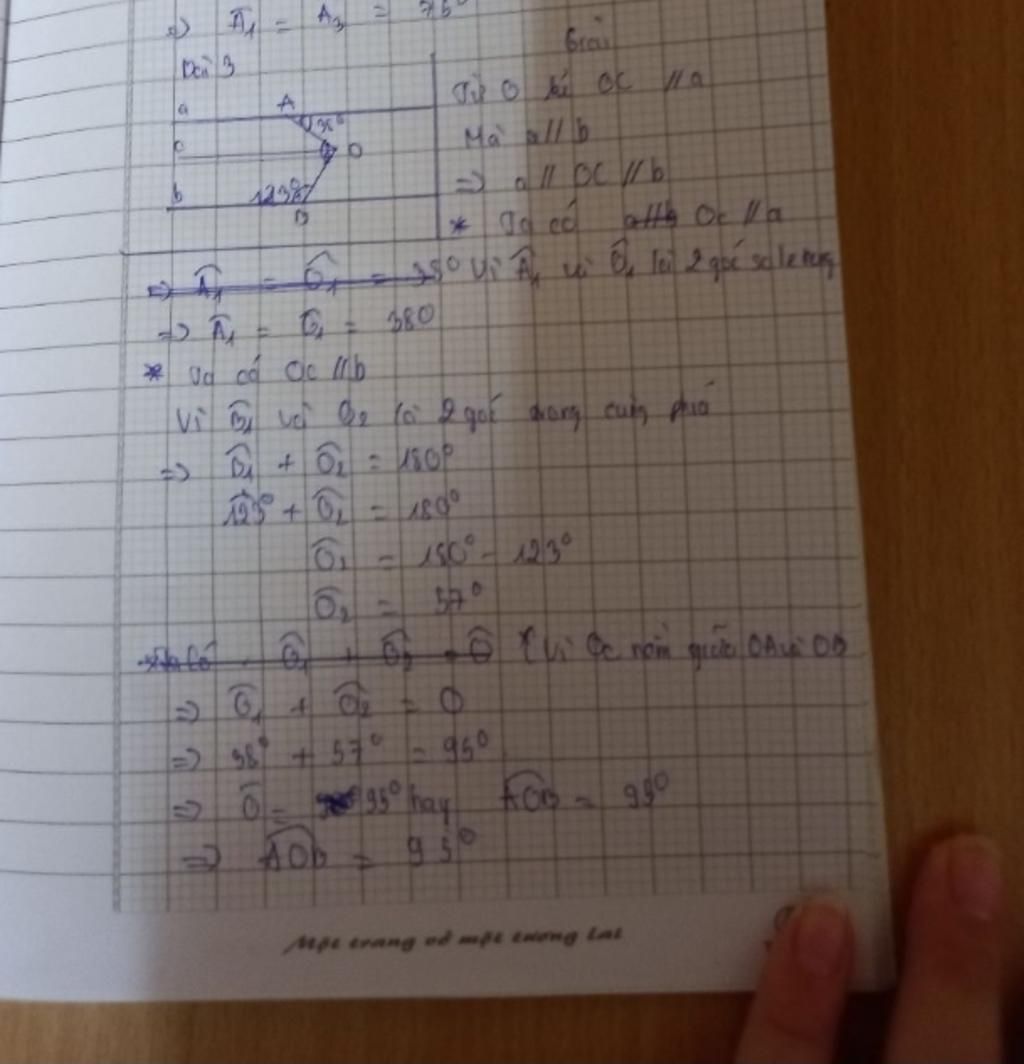 => Â₁ = A₃ = 75°
Bài 3
a A 38°
c O
b 123° B
Giải
Từ O kẻ OC // a
Mà a // b
=> a // OC // b
* Ta có a//b Oc // a
=> Â₁ = Ô₁ = 38° Vì Â₁ và Ô₁ là 2 góc so le trong
=> Â₁ = Ô₁ = 380
* Ta có Oc // b
Vì B̂₁ và O₂ là 2 góc trong cùng phía
=> B̂₁ + Ô₂ = 180°
123° + Ô₂ = 180°
Ô₂ = 180° - 123°
Ô₂ = 57°
Ta có Ô₁ + Ô₂ = Ô (Vì Oc nằm giữa OA và OB
=> Ô₁ + Ô₂ = O
=> 38° + 57° = 95°
=> Ô = 95° hay AOB = 95°
=> AOB = 95°
Một trang vở một tương lai